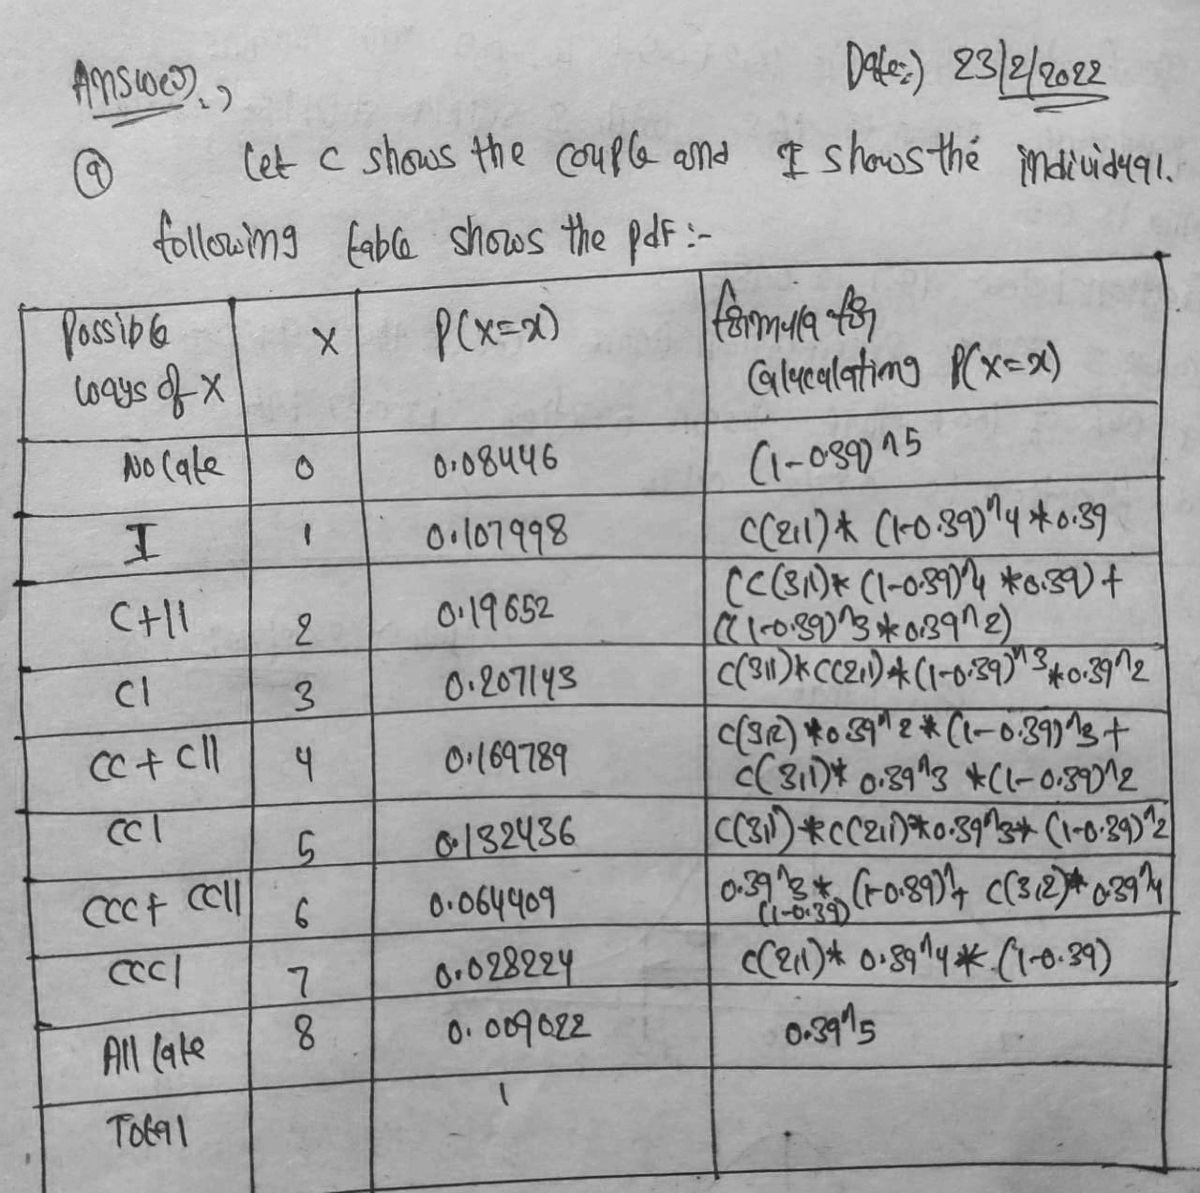 Answer:,
Date:) 23/2/2022
(a) let C shows the couple and I shows the individual.
following table shows the pdf :-
Possible ways of X | X | P(X=x) | formula for Calculating P(X=x)
No late | 0 | 0.08446 | (1-0.39)^5
I | 1 | 0.107998 | C(2,1)* (1-0.39)^4*0.39
C+II | 2 | 0.19652 | (C(3,1)* (1-0.39)^4 *0.39)+ ((1-0.39)^3*0.39^2)
CI | 3 | 0.207143 | C(3,1)*C(2,1)*(1-0.39)^3*0.39^2
CC + CII | 4 | 0.169789 | C(3,2)*0.39^2*(1-0.39)^3+ C(3,1)* 0.39^3 *(1-0.39)^2
CCI | 5 | 0.132436 | C(3,1)*C(2,1)*0.39^3* (1-0.39)^2
CCC+ CCII | 6 | 0.064409 | 0.39^3* (1-0.39) (1-0.39)+ C(3,2)* 0.39^4
CCCI | 7 | 0.028224 | C(2,1)* 0.39^4* (1-0.39)
All late | 8 | 0.009022 | 0.39^5
Total | 1